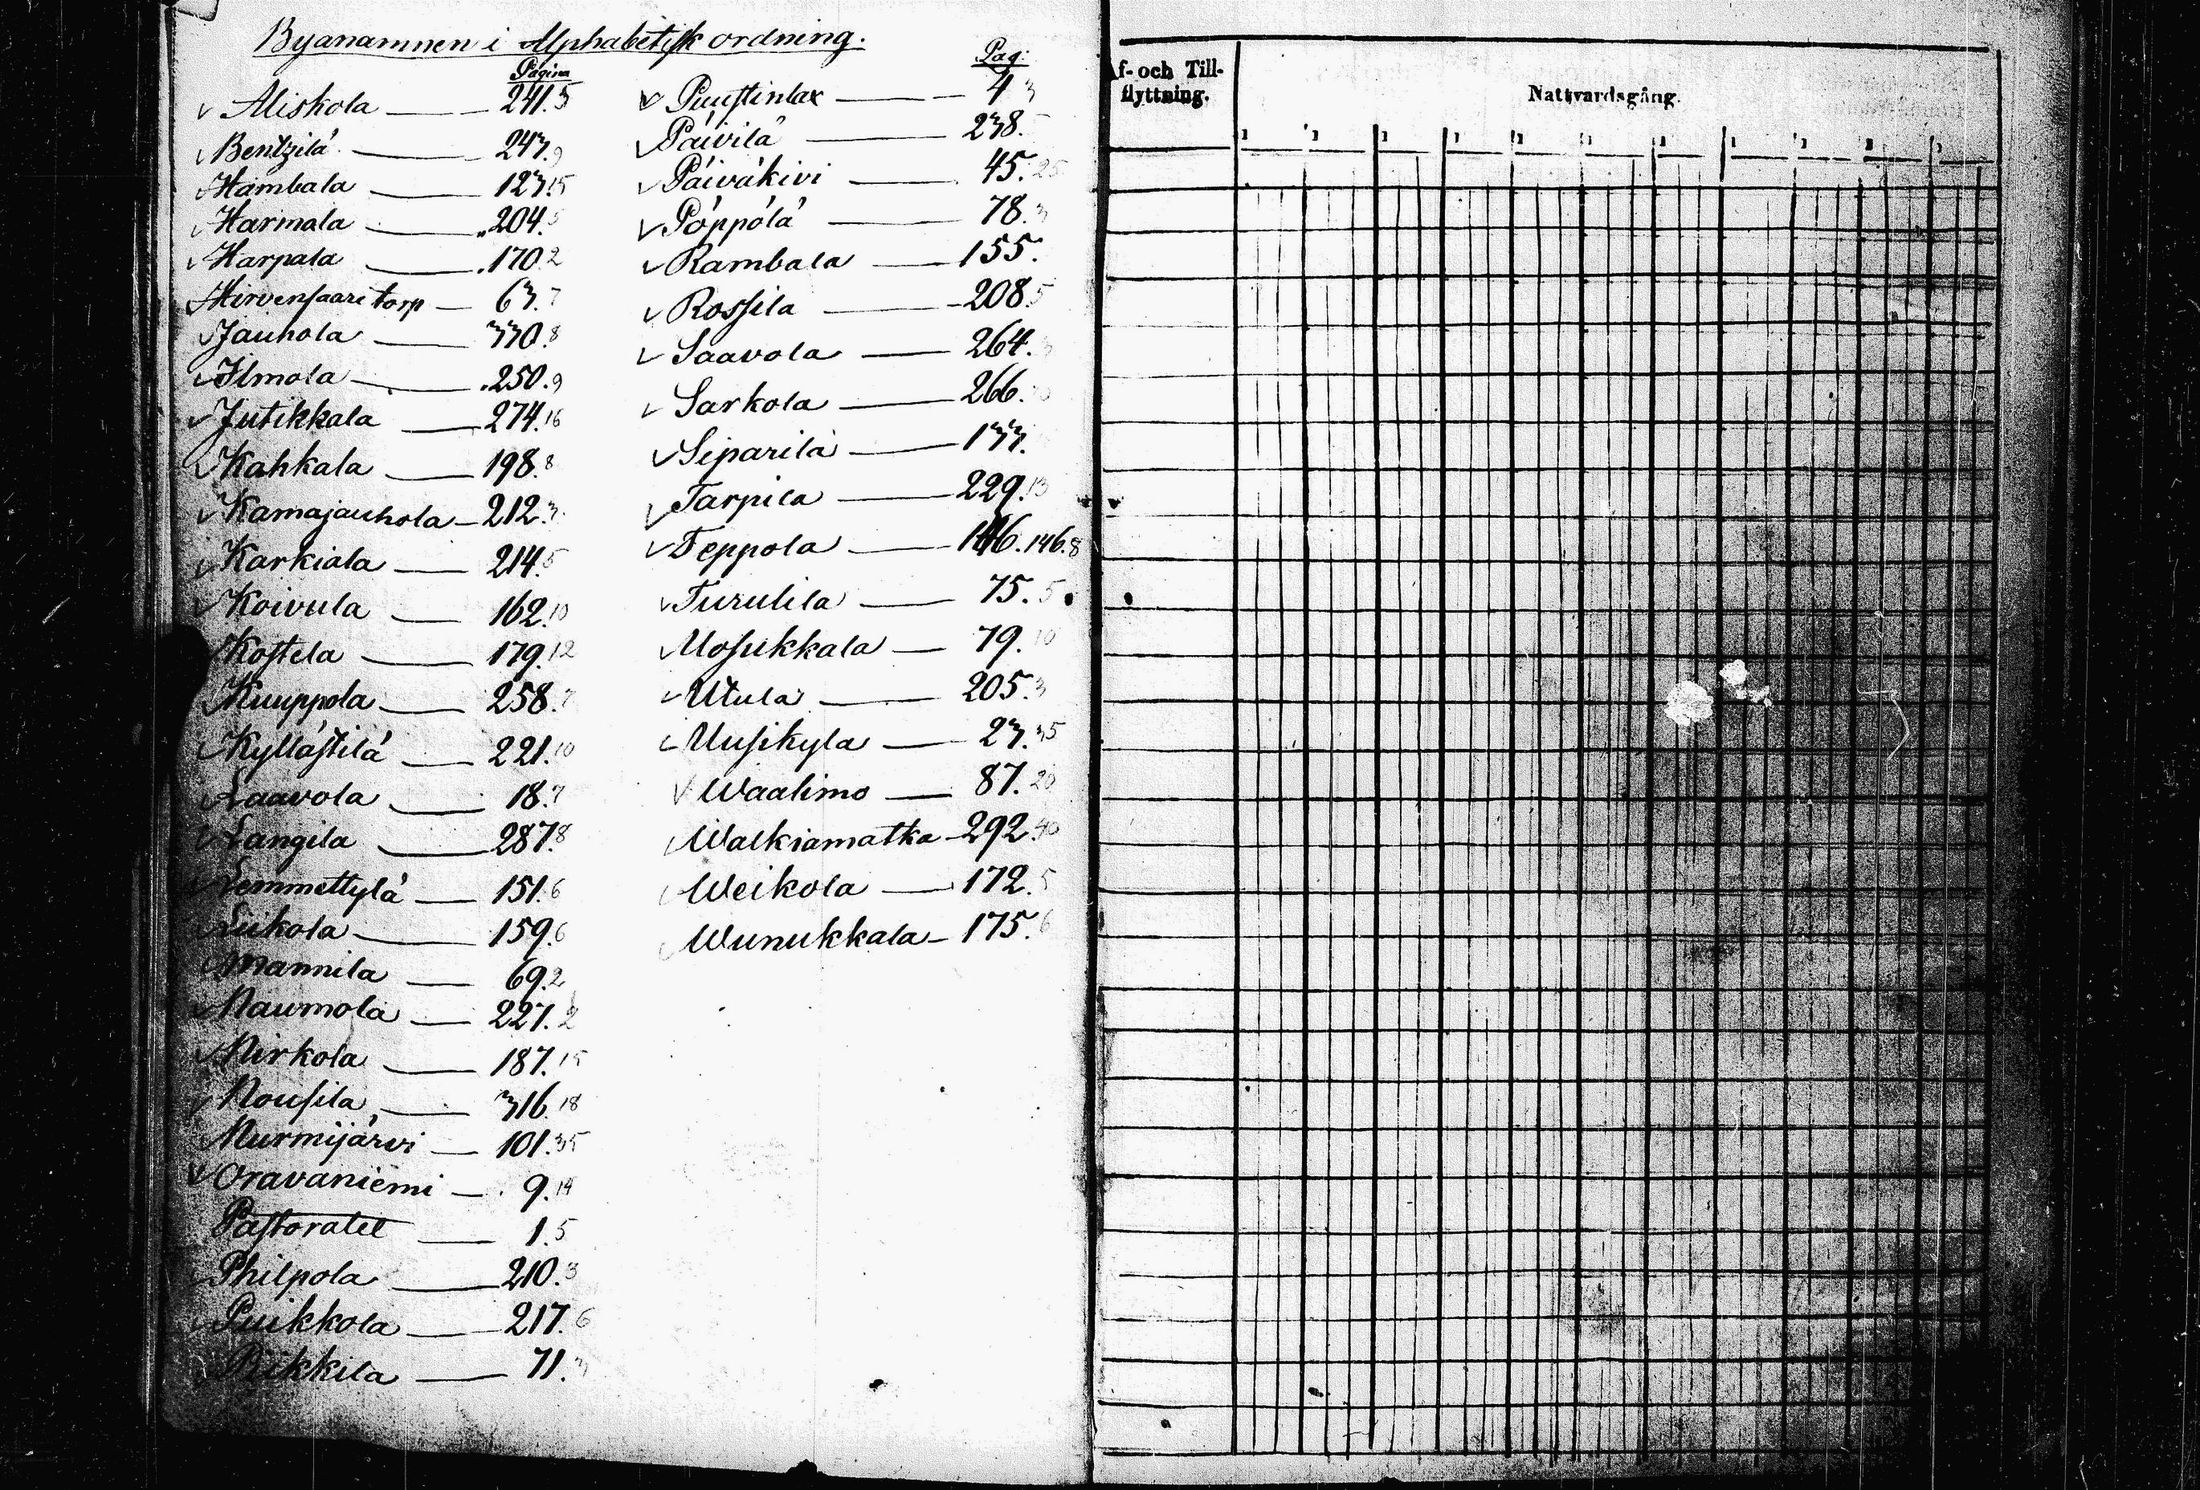 Byanamnen i Alphabetisk ordning.
Pagina
Aliskola 241. 5
Bentzilä 247. 9
Hambala 123. 15
Harmala 204. 5
Harpala 170. 2
Hirvensaari torp 63. 7
Jauhola 330. 8
Ilmola 250. 9
Jutikkala 274. 16
Kahkala 198. 8
Kamajauhola 212. 3
Karkiala 214. 5
Koivula 162. 10
Kostela 179. 12
Kuuppola 258. 7
Kyllästilä 221. 10
Laavola 18. 7
Langila 287. 8
Lemmettylä 151. 6
Liikola 159. 6
Mannila 69. 2
Naumola 227. 2
Nirkola 187. 15
Nousila 316. 18
Nurmijärvi 101. 35
Oravaniemi 9. 14
Pastoratet 1. 5
Philpola 210. 3
Puikkola 217. 6
Pikkila 71. 3
Pag:
Puustinlax 4 3
Päivilä 238.
Päiväkivi 45. 25
Pöppölä 78. 3
Rambala 155.
Rossila 208. 5
Saavola 264. 3
Sarkola 266.
Siparila 133.
Tarpila 229. 13
Teppola 146. 146. 8
Turulila 75. 5
Uosukkala 79. 10
Utula 205. 3
Uusikyla 23. 35
Waalimo 87. 20
Walkiamatka 292. 40
Weikola 172. 5
Wunukkala 175. 6
Af- och Till-
flyttning.
Nattvardsgång.